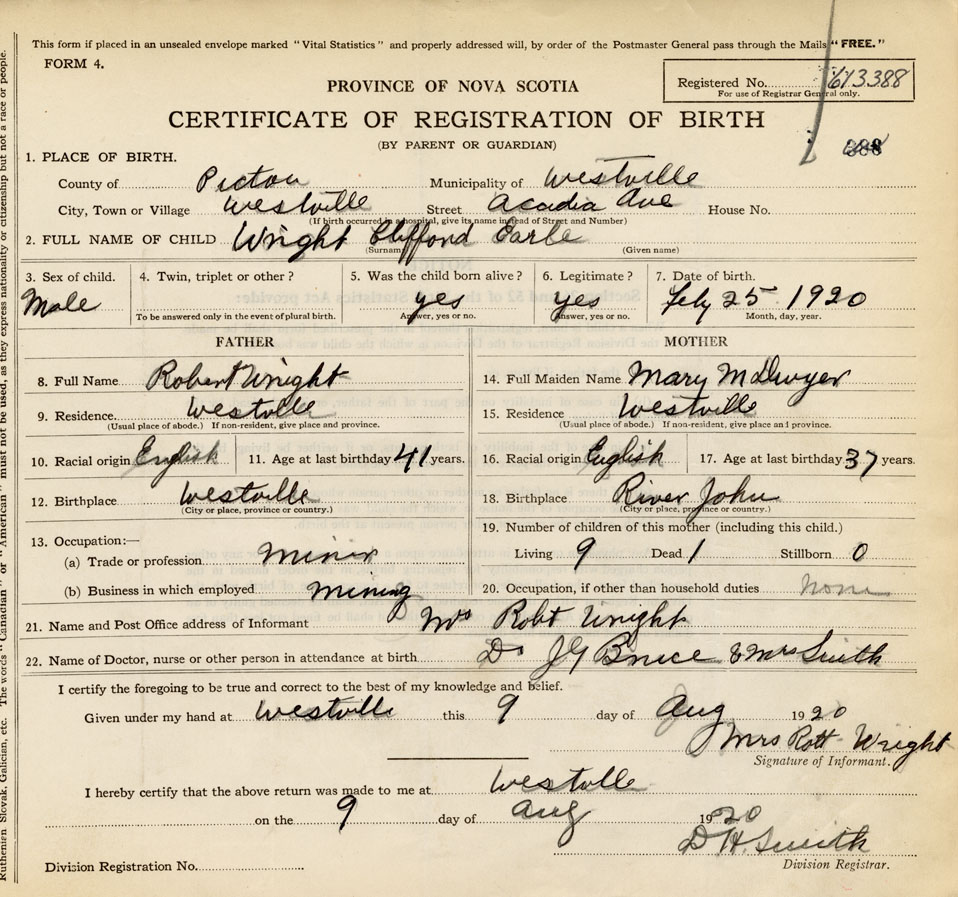 This form if placed in an unsealed envelope marked "Vital Statistics" and properly addressed will, by order of the Postmaster General pass through the Mails "FREE."
FORM 4.
Registered No. 613388
For use of Registrar General only.
PROVINCE OF NOVA SCOTIA
CERTIFICATE OF REGISTRATION OF BIRTH
(BY PARENT OR GUARDIAN)
388
1. PLACE OF BIRTH.
County of Pictou Municipality of Westville
City, Town or Village Westville Street Acadia Ave House No.
(If birth occurred in a hospital, give its name instead of Street and Number)
2. FULL NAME OF CHILD Wright Clifford Earle
(Surname) (Given name)
3. Sex of child. 4. Twin, triplet or other? 5. Was the child born alive? 6. Legitimate? 7. Date of birth.
Male yes yes Feby 25 1920
To be answered only in the event of plural birth. Answer, yes or no. Answer, yes or no. Month, day, year.
FATHER MOTHER
8. Full Name Robert Wright 14. Full Maiden Name Mary McDwyer
9. Residence. Westville 15. Residence Westville
(Usual place of abode.) If non-resident, give place and province. (Usual place of abode.) If non-resident, give place and province.
10. Racial origin English 11. Age at last birthday 41 years. 16. Racial origin English 17. Age at last birthday 37 years.
12. Birthplace Westville 18. Birthplace River John
(City or place, province or country.) (City or place, province or country.)
13. Occupation:— 19. Number of children of this mother (including this child.)
(a) Trade or profession Miner Living 9 Dead 1 Stillborn 0
(b) Business in which employed mining 20. Occupation, if other than household duties None
21. Name and Post Office address of Informant Mrs Robt Wright
22. Name of Doctor, nurse or other person in attendance at birth Dr JG Bruce & Mrs Smith
I certify the foregoing to be true and correct to the best of my knowledge and belief.
Given under my hand at Westville this 9 day of Aug 1920
Mrs Robt Wright
Signature of Informant.
I hereby certify that the above return was made to me at Westville
on the 9 day of Aug 1920
D H. Smith
Division Registration No. Division Registrar.
Ruthenien, Slovak, Galician, etc. The words "Canadian" or "American" must not be used, as they express nationality or citizenship but not a race or people.